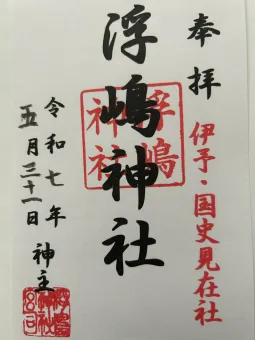 奉拝
伊予・国史見在社
浮嶋神社
浮嶋神社
令和七年
五月三十一日
神主